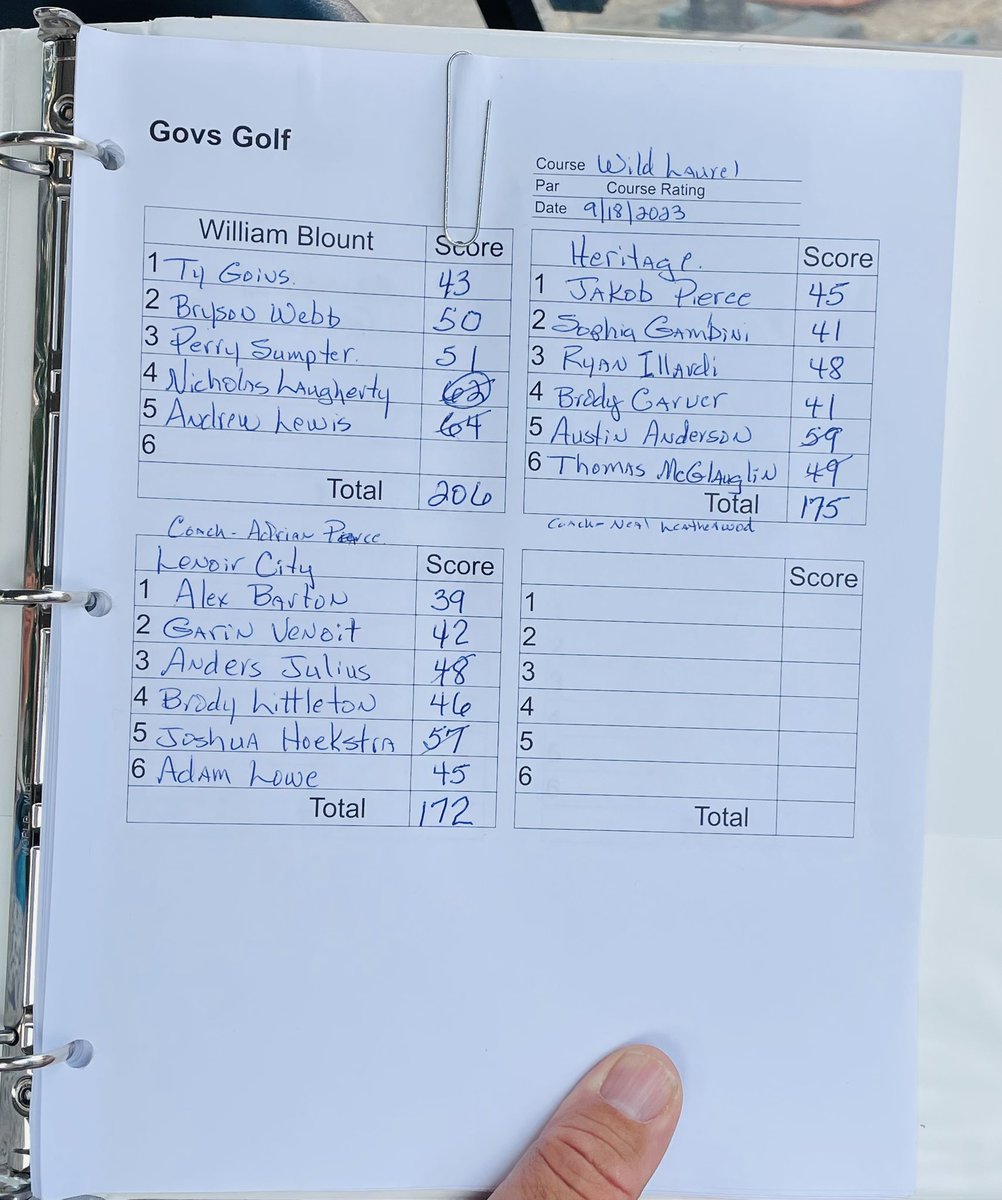 Govs Golf
Course Wild Laurel
Par Course Rating
Date 9/18/2023
William Blount Score
1 Ty Goins 43
2 Bryson Webb 50
3 Perry Sumpter 51
4 Nicholas Laugherty 62
5 Andrew Lewis 64
6
Total 206
Heritage Score
1 Jakob Pierce 45
2 Sophia Gambini 41
3 Ryan Illardi 48
4 Brody Carver 41
5 Austin Anderson 59
6 Thomas McGlauglin 49
Total 175
Coach - Adrian Pearce
Coach - Neal Leatherwood
Lenoir City Score
1 Alex Barton 39
2 Garin Venoit 42
3 Anders Julius 48
4 Brody Littleton 46
5 Joshua Hoekstra 57
6 Adam Lowe 45
Total 172
Score
1
2
3
4
5
6
Total